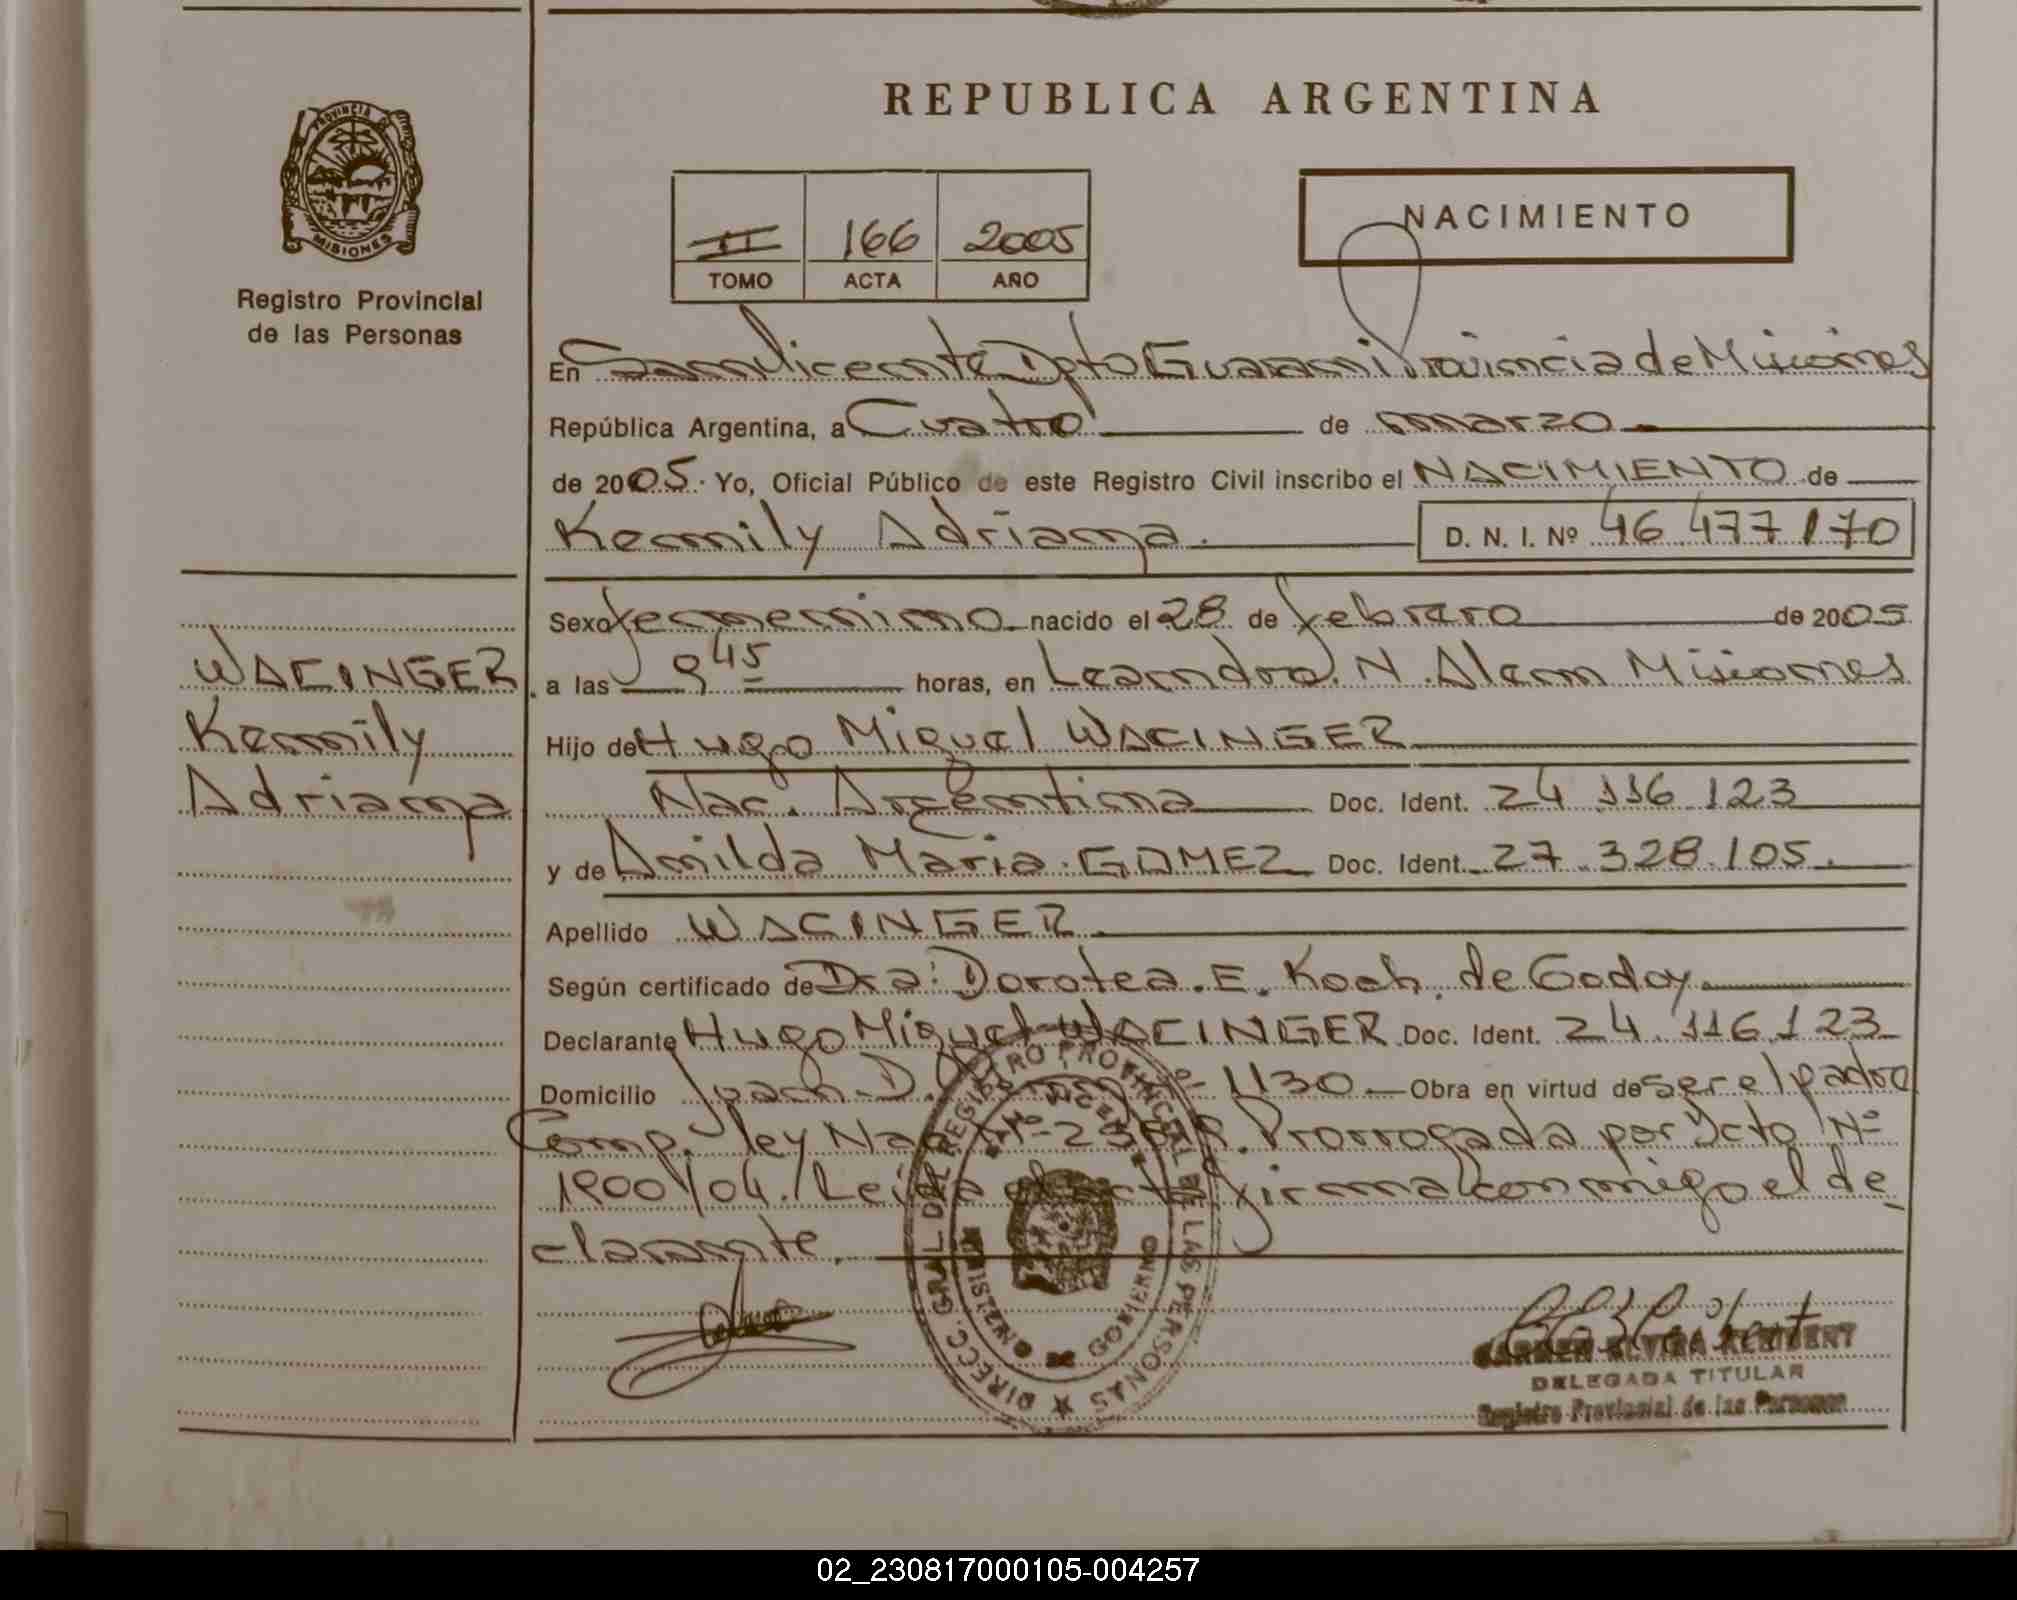 PROVINCIA DE
MISIONES
Registro Provincial
de las Personas
REPUBLICA ARGENTINA
II 166 2005
TOMO ACTA AÑO
NACIMIENTO
En San Vicente Dpto Guarani Provincia de Misiones
República Argentina, a Cuatro de marzo
de 2005. Yo, Oficial Público de este Registro Civil inscribo el NACIMIENTO de
Kemily Adriana. D. N. I. Nº 46 477 170
Sexo femenino nacido el 28 de febrero de 2005
WACINGER
Kemily
Adriana
a las 9 45 horas, en Leandro. N. Alem Misiones
Hijo de Hugo Miguel WACINGER
Nac. Argentina Doc. Ident. 24 116 123
y de Anilda Maria GOMEZ Doc. Ident. 27.328.105.
Apellido WACINGER
Según certificado de Dra: Dorotea. E. Koch. de Godoy
Declarante Hugo Miguel WACINGER Doc. Ident. 24 116.123
Domicilio Juan D. Nº 1130 Obra en virtud de ser el padre
Comp. ley Nac. Nº Prorrogada por Dcto Nº
1900/04./ Leida el acta firma conmigo el de
clarante.
DIRECC. GRAL DEL REGISTRO PROVINCIAL DE LAS PERSONAS
MINISTERIO DE GOBIERNO
CARMEN ELVIRA
DELEGADA TITULAR
Registro Provincial de las Personas
02_230817000105-004257